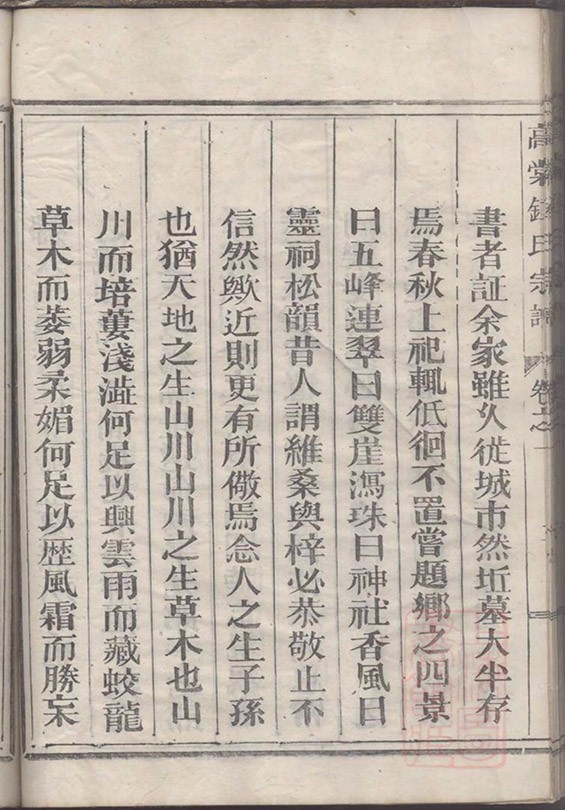 氏宗譜 卷之一
書者証余家雖久從城市然坵墓大半存
焉春秋上祀輒低徊不置嘗題鄉之四景
曰五峰連翠曰雙崖瀉珠曰神社香風曰
靈祠松韻昔人謂維桑與梓必恭敬止不
信然歟近則更有所儆焉念人之生子孫
也猶天地之生山川山川之生草木也山
川而培塿淺澁何足以興雲雨而藏蛟龍
草木而萎弱柔媚何足以歷風霜而勝宋